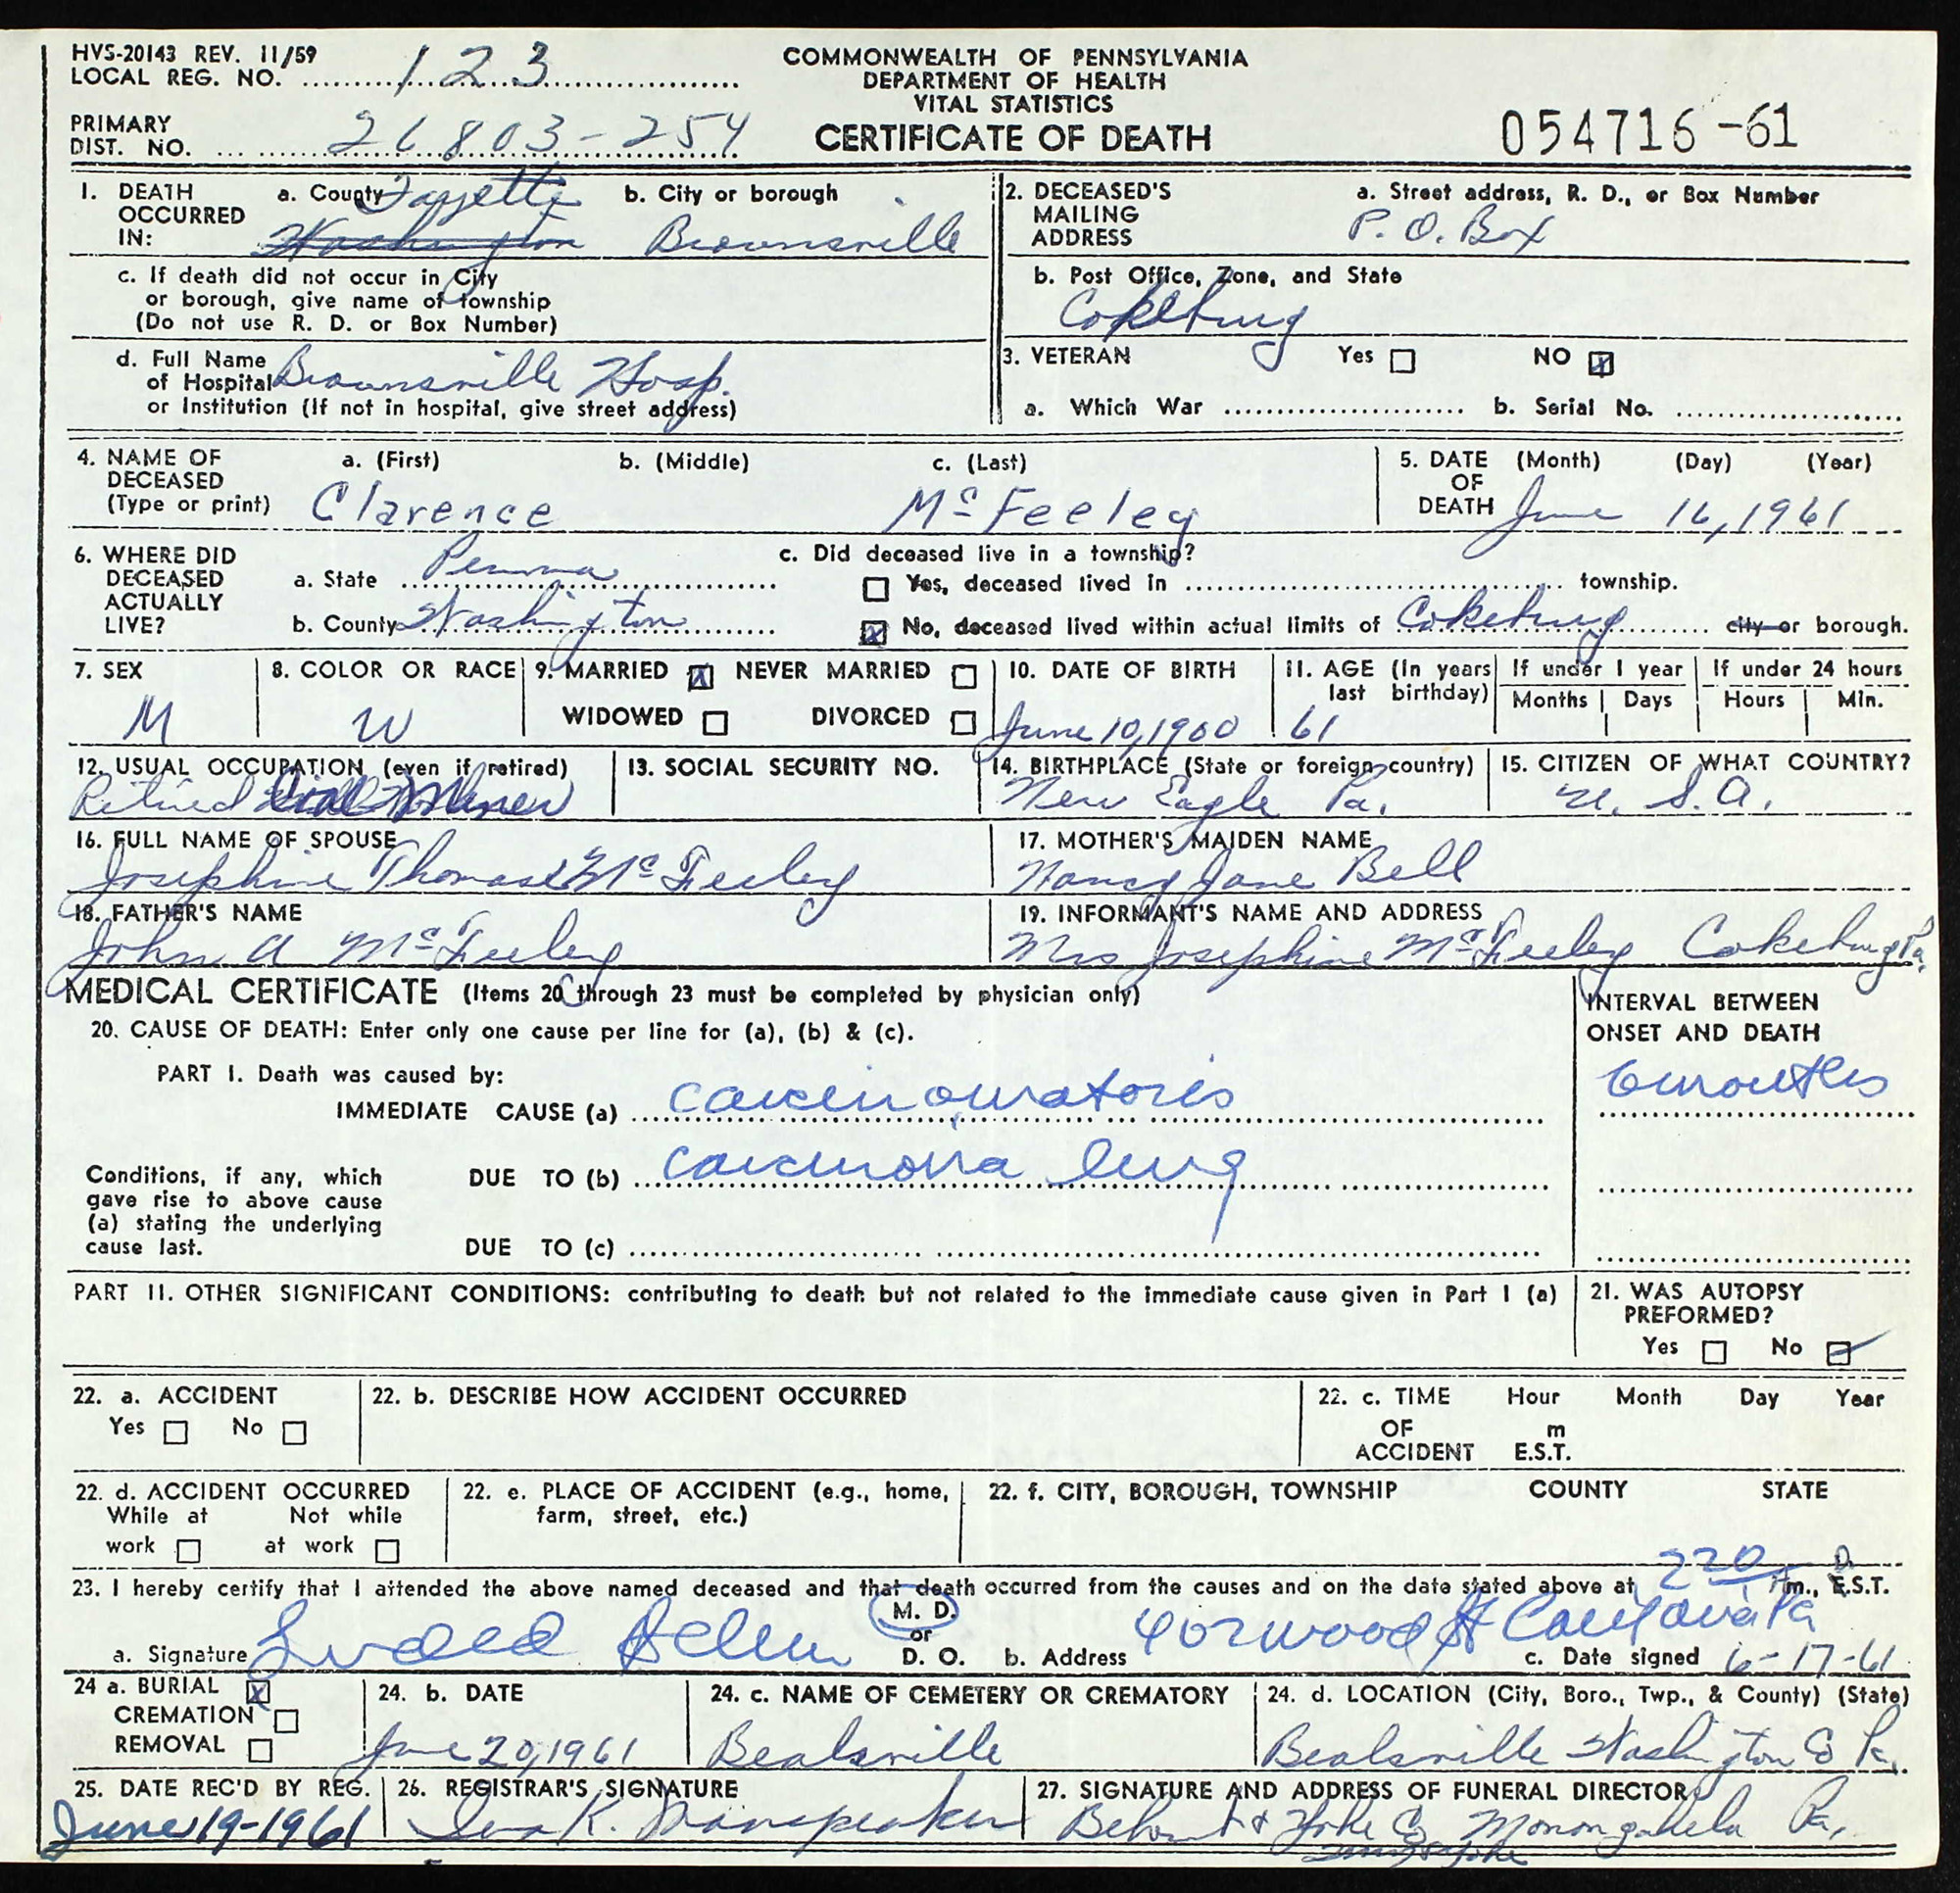 HVS-20143 REV. 11/59
LOCAL REG. NO. 123
COMMONWEALTH OF PENNSYLVANIA
DEPARTMENT OF HEALTH
VITAL STATISTICS
CERTIFICATE OF DEATH
PRIMARY
DIST. NO. 26803-254
054716-61
1. DEATH OCCURRED IN:
a. County Fayette
Washington
b. City or borough
Brownsville
c. If death did not occur in City
or borough, give name of township
(Do not use R. D. or Box Number)
d. Full Name
of Hospital Brownsville Hosp.
or Institution (If not in hospital, give street address)
2. DECEASED'S MAILING ADDRESS
a. Street address, R. D., or Box Number
P. O. Box
b. Post Office, Zone, and State
Cokeburg
3. VETERAN Yes NO X
a. Which War b. Serial No.
4. NAME OF DECEASED (Type or print)
a. (First) b. (Middle) c. (Last)
Clarence Mc Feeley
5. DATE OF DEATH (Month) (Day) (Year)
June 16, 1961
6. WHERE DID DECEASED ACTUALLY LIVE?
a. State Penna
b. County Washington
c. Did deceased live in a township?
Yes, deceased lived in township.
X No, deceased lived within actual limits of Cokeburg city or borough.
7. SEX
M
8. COLOR OR RACE
W
9. MARRIED X NEVER MARRIED
WIDOWED DIVORCED
10. DATE OF BIRTH
June 10, 1900
11. AGE (In years last birthday)
61
If under 1 year
Months Days
If under 24 hours
Hours Min.
12. USUAL OCCUPATION (even if retired)
Retired Coal Miner
13. SOCIAL SECURITY NO.
14. BIRTHPLACE (State or foreign country)
New Eagle Pa.
15. CITIZEN OF WHAT COUNTRY?
U. S. A.
16. FULL NAME OF SPOUSE
Josephine Thomas Mc Feeley
17. MOTHER'S MAIDEN NAME
Nancy Jane Bell
18. FATHER'S NAME
John A Mc Feeley
19. INFORMANT'S NAME AND ADDRESS
Mrs Josephine Mc Feeley Cokeburg Pa.
MEDICAL CERTIFICATE (Items 20 through 23 must be completed by physician only)
20. CAUSE OF DEATH: Enter only one cause per line for (a), (b) & (c).
INTERVAL BETWEEN
ONSET AND DEATH
PART I. Death was caused by:
IMMEDIATE CAUSE (a) carcinomatosis
6 months
Conditions, if any, which
gave rise to above cause
(a) stating the underlying
cause last.
DUE TO (b) carcinoma lung
DUE TO (c)
PART II. OTHER SIGNIFICANT CONDITIONS: contributing to death but not related to the immediate cause given in Part I (a)
21. WAS AUTOPSY
PREFORMED?
Yes No
22. a. ACCIDENT
Yes No
22. b. DESCRIBE HOW ACCIDENT OCCURRED
22. c. TIME OF ACCIDENT Hour Month Day Year
m
E.S.T.
22. d. ACCIDENT OCCURRED
While at work Not while at work
22. e. PLACE OF ACCIDENT (e.g., home,
farm, street, etc.)
22. f. CITY, BOROUGH, TOWNSHIP COUNTY STATE
23. I hereby certify that I attended the above named deceased and that death occurred from the causes and on the date stated above at 220 m., E.S.T.
D.
a. Signature
M. D.
or
D. O.
b. Address wood St
Pa
c. Date signed 6-17-61
24 a. BURIAL X
CREMATION
REMOVAL
24. b. DATE
June 20, 1961
24. c. NAME OF CEMETERY OR CREMATORY
Bealsville
24. d. LOCATION (City, Boro., Twp., & County) (State)
Bealsville Washington Co Pa.
25. DATE REC'D BY REG.
June 19-1961
26. REGISTRAR'S SIGNATURE
K.
27. SIGNATURE AND ADDRESS OF FUNERAL DIRECTOR
& Yohe Co Monongahela Pa.